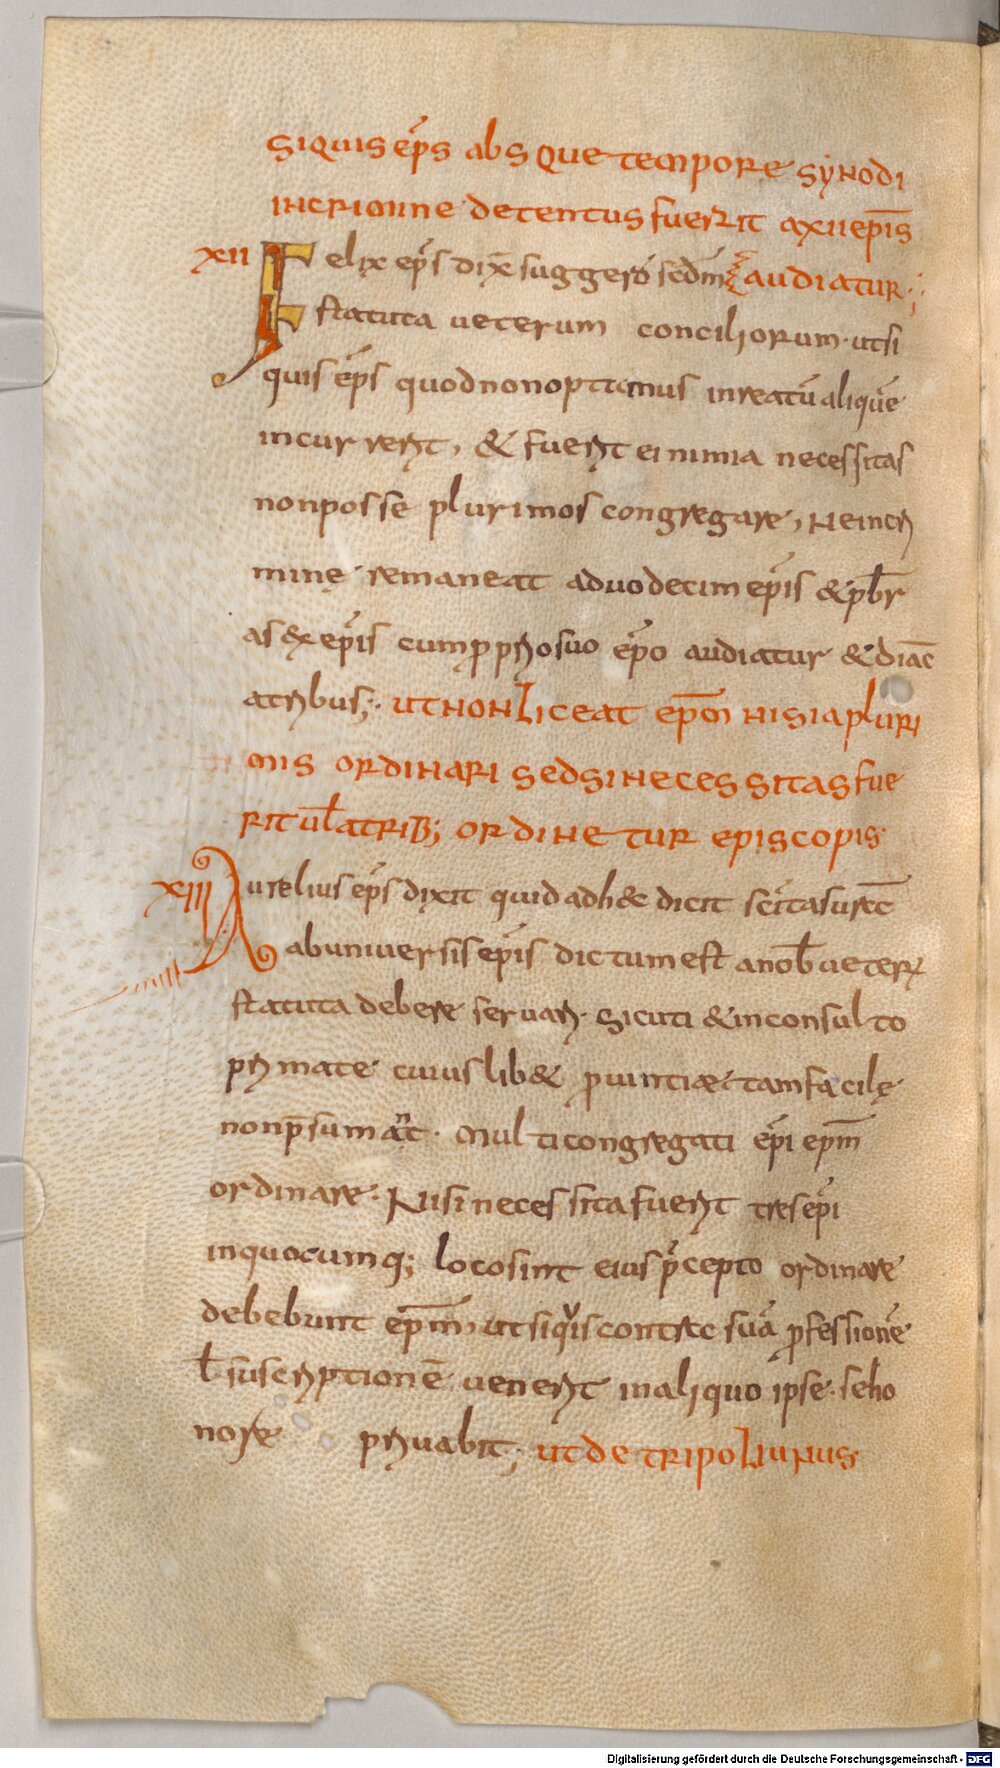 siquis ep̄s absque tempore synodi
incrimine detentus fuerit axii ep̄is
xii Felix ep̄s dix̄ suggero sed̄m audiatur.
statuta ueterum conciliorum. utsi
quis ep̄s quodnonoptamus inreatū aliquē
incurrerit, & fuerit ei nimia necessitas
nonposse plurimos congregare, neincri
minę remaneat aduodecim ep̄is & pb̄r
as&x ep̄is cumpproprio suo ep̄o audiatur & diac̄
atribus;. ut non liceat ep̄m nisi apluri
mis ordinari sed sinecessitas fue
rit ul̄ atrib; ordinetur episcopis.
xiii Aurelius ep̄s dixit quid adh&c dicit sc̄itas ur̄ec
abuniuersis ep̄is dictum est anob̄ ueter
statuta debere seruari. sicuti & inconsulto
primate cuiuslib& prouintiæ tam facilę
nonp̄sumant. multi congregati ep̄i ep̄m
ordinare. Nisi necessita fuerit tres ep̄i
inquocumq; loco sint eius p̄cepto ordinare
debebunt ep̄m, ut siquis contrac suā professionē
l̄ suscriptionē uenerit inaliquo ipse. seho
nore priuabit; ut de tripoli unus
Digitalisierung gefördert durch die Deutsche Forschungsgemeinschaft - DFG